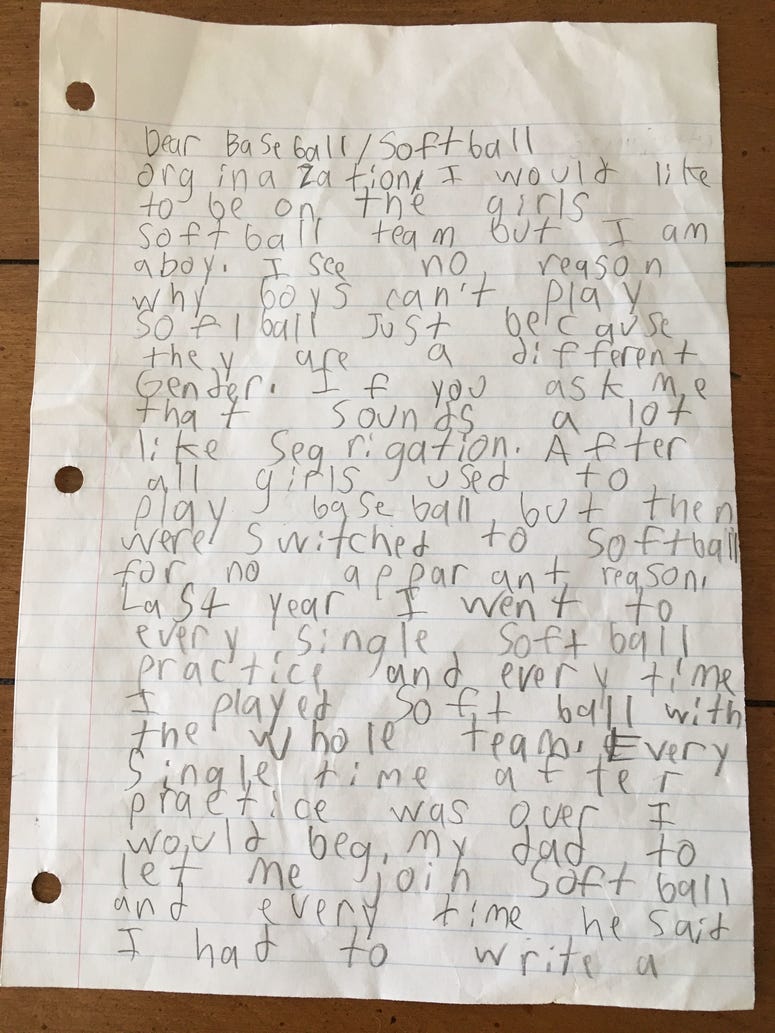 Dear Baseball/Softball
orginazation, I would like
to be on the girls
softball team but I am
a boy. I see no reason
why boys can't play
softball Just belcause
they are a different
Gender. If you ask me
that sounds a lot
like Segrigation. After
all girls used to
play baseball but then
were switched to softball
for no apparant reason.
Last year I went to
every single softball
practice and every time
I played softball with
the whole team. Every
single time after
practice was over I
would beg my dad to
let me join softball
and every time he said
I had to write a